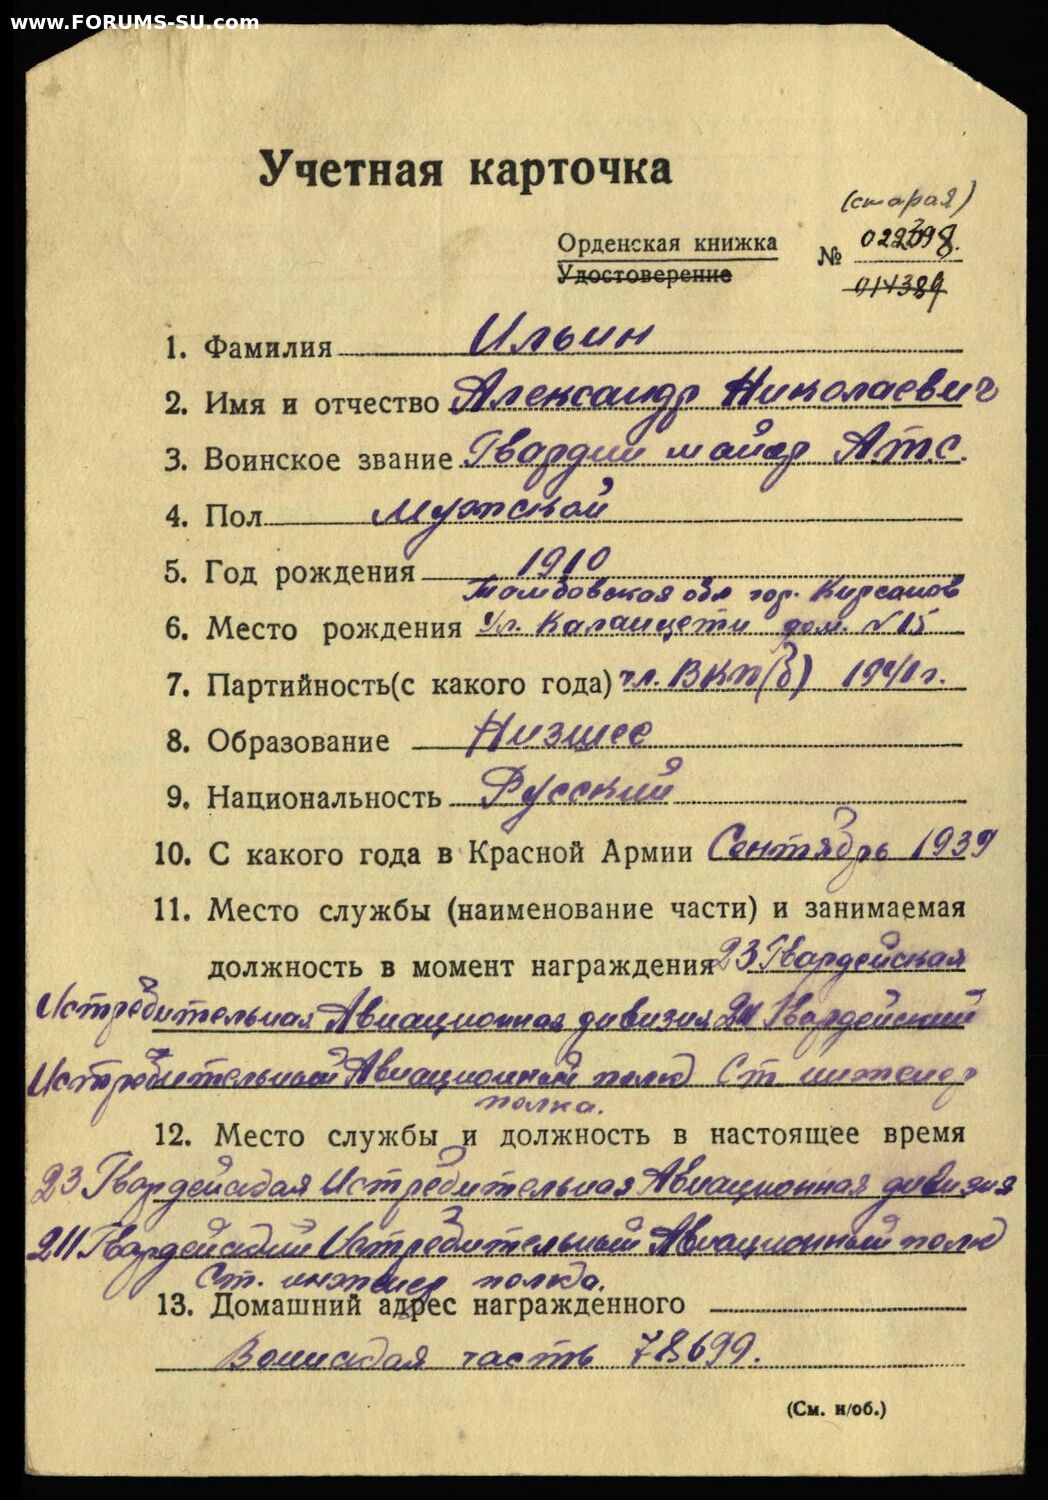 www.FORUMS-SU.com
Учетная карточка
(старая)
Орденская книжка № 
Удостоверение 014389
1. Фамилия Ильин
2. Имя и отчество Александр Николаевич
3. Воинское звание Гвардии майор А.Т.С.
4. Пол Мужской
5. Год рождения 1910
Тамбовская обл гор. Кирсанов
6. Место рождения Ул. дом. №15
7. Партийность(с какого года) чл. ВКП(б) 1941г.
8. Образование Низшее
9. Национальность Русский
10. С какого года в Красной Армии Сентябрь 1939
11. Место службы (наименование части) и занимаемая
должность в момент награждения 23 Гвардейская
Истребительная Авиационная дивизия 211 Гвардейский
Истребительный Авиационный полк Ст инженер
полка.
12. Место службы и должность в настоящее время
23 Гвардейская Истребительная Авиационная дивизия
211 Гвардейский Истребительный Авиационный полк
Ст. инженер полка.
13. Домашний адрес награжденного
Воинская часть 78699.
(См. н/об.)